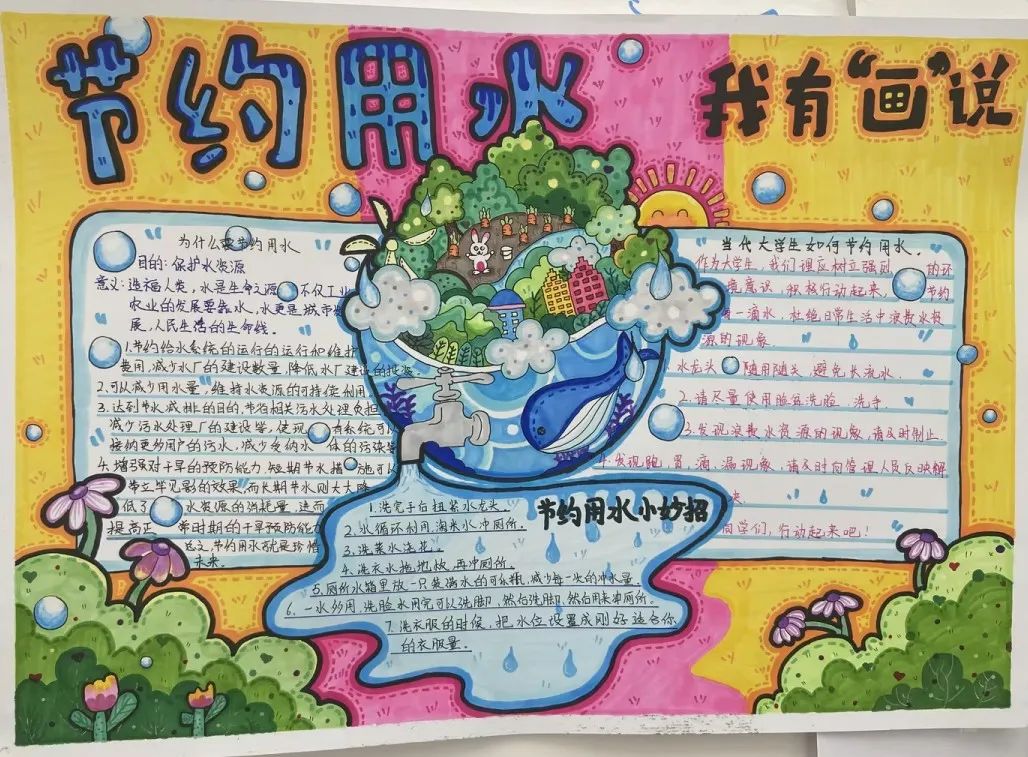 节约用水
我有“画”说
为什么要节约用水
目的:保护水资源
意义:造福人类,水是生命之源 不仅工业
农业的发展要靠水,水更是城市
展,人民生活的生命线。
1.节约给水系统的运行的运行和维护
费用,减少水厂的建设数量,降低水厂建设的投资
2.可以减少用水量,维持水资源的可持续利用
3.达到节水减排的目的,节省相关污水处理负担
减少污水处理厂的建设 使现 有系统可
接纳更多用户的污水,减少受纳水 体的污染
4.增强对干旱的预防能力 短期节水措 施可以
节立竿见影的效果,而长期节水则大大降
低了 水资源的消耗量 进而
提高正 常时期的干旱预防能力
总之,节约用水就是珍惜
未来.
当代大学生如何节约用水.
作为大学生,我们理应树立强烈 的环
境意识,积极行动起来, 节约
每一滴水,杜绝日常生活中浪费水资
源的现象.
水龙头 随用随关 避免长流水.
2.请尽量使用脸盆洗脸、洗手.
3.发现浪费水资源的现象,请及时制止.
4.发现跑、冒、滴、漏现象,请及时向管理人员反映解
来.
同学们,行动起来吧!
节约用水小妙招
1.洗完手后扭紧水龙头.
2.水循环利用,淘米水冲厕所.
3.洗菜水浇花.
4.洗衣水拖地板,再冲厕所.
5.厕所水箱里放一只装满水的可乐瓶,减少每一次的冲水量.
6.一水多用,洗脸水用完可以洗脚,然后洗脚,然后用来冲厕所。
7.洗衣服的时候,把水位设置成刚好适合你
的衣服量.